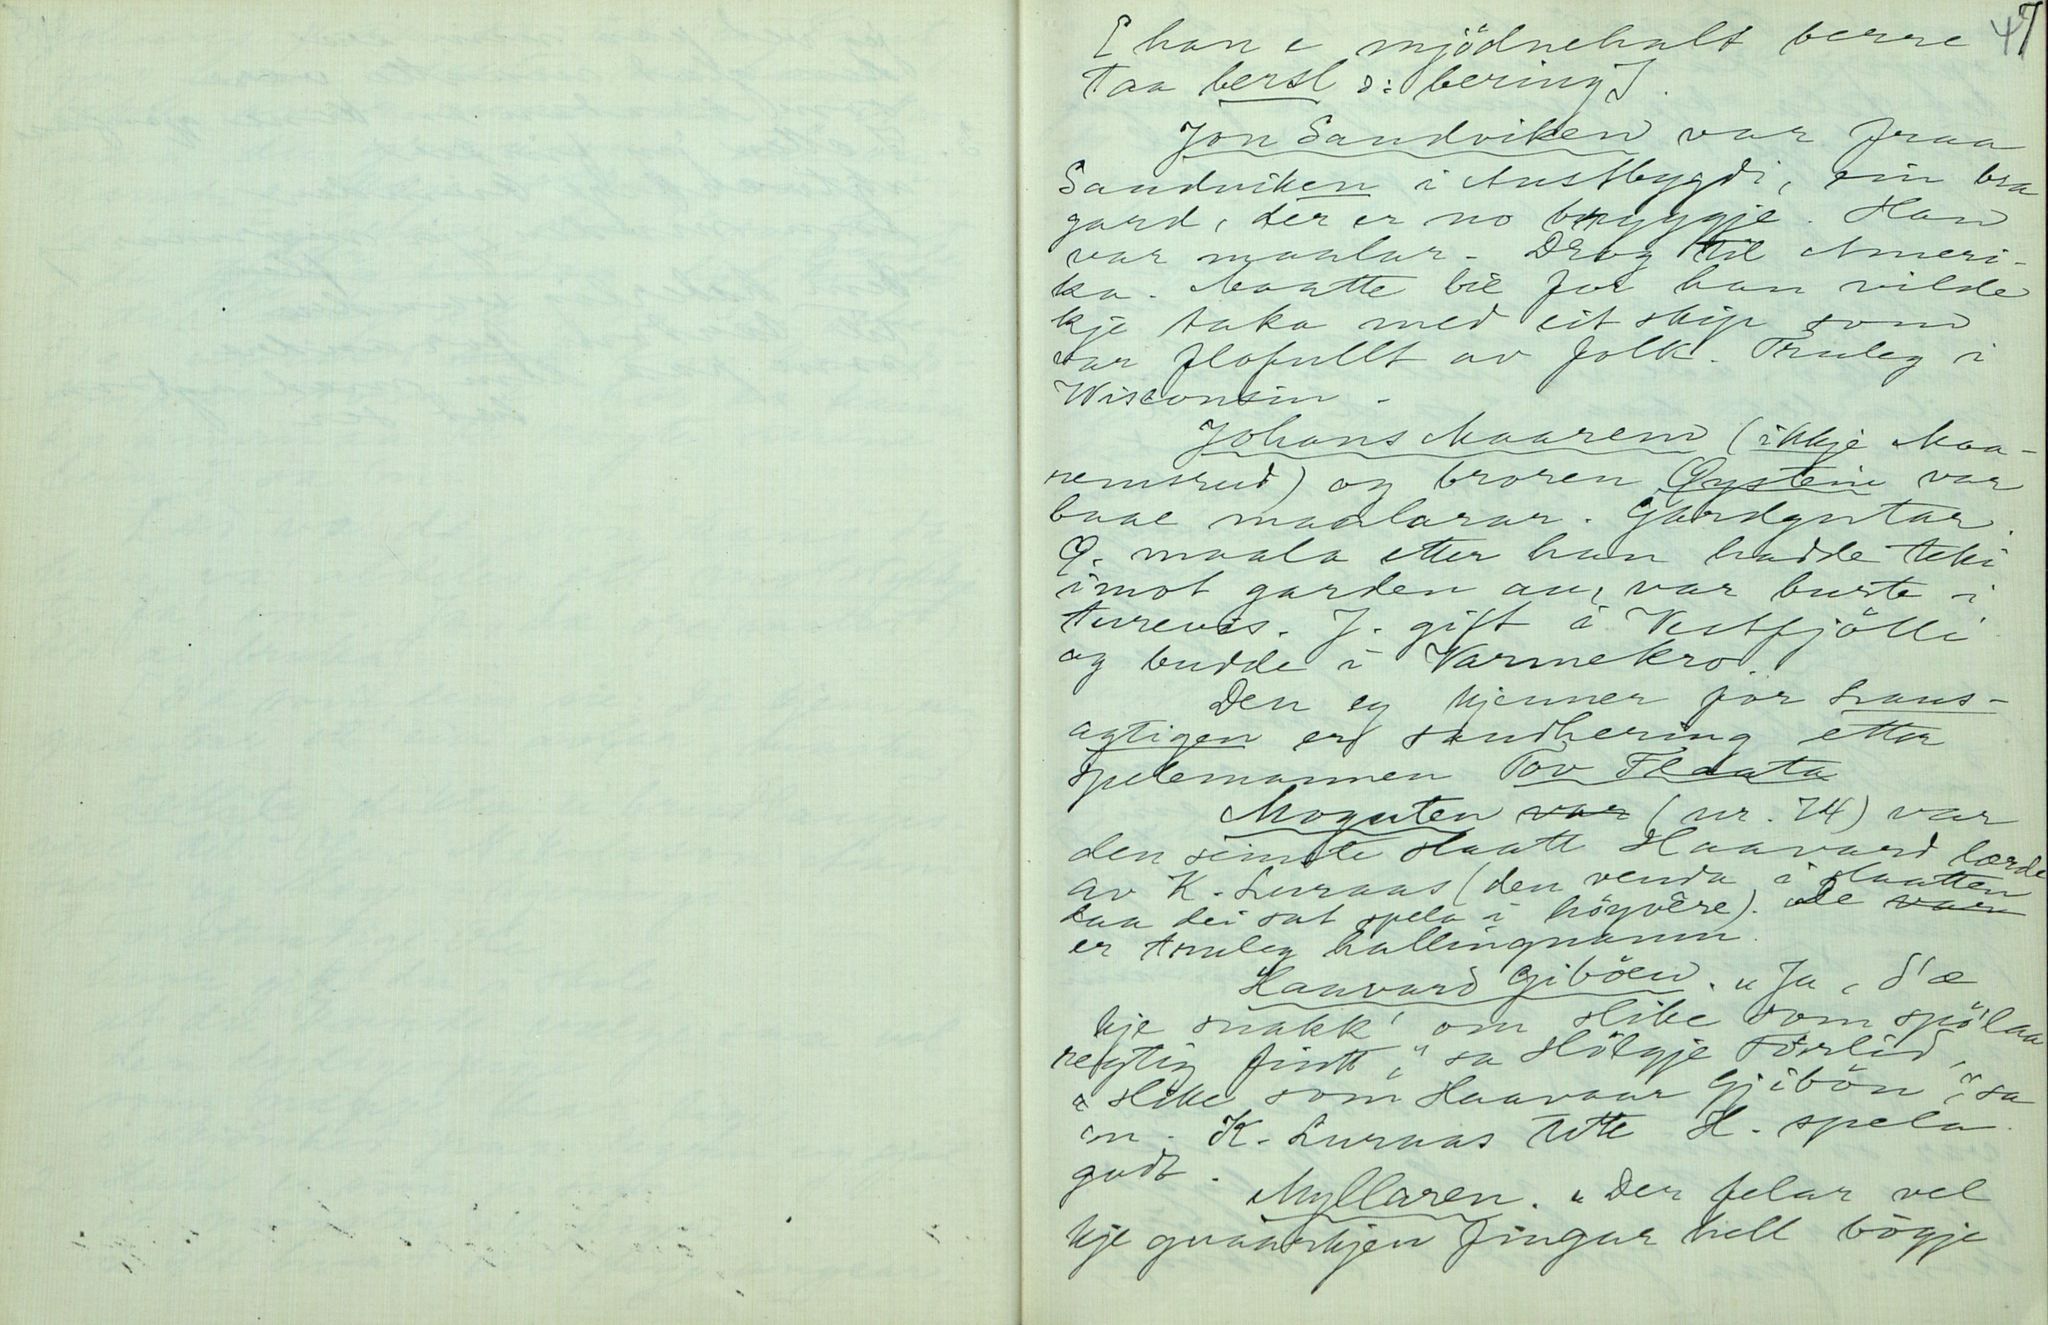 47
[han e mjödnehalt berre
taa bersl ɔ: bering].
Jon Sandviken var fraa
Sandviken i Austbygdi, ein bra
gard, der er no bryggje. Han
var maalar. Drog til Ameri-
ka. Maatte bie for han vilde
kje taka med eit skip som
var flofullt av folk. Truleg i
Wisconsin.
Johans Maarem (ikkje Maa-
remsrud) og broren Øystein var
baae maalarar. Gardgutar.
Ø. maala etter han hadde teki
imot garden au, var burte i
turevis. J. gift i Vestfjölli
og budde i Varmekro.
Den eg kjenner för haus-
agtigen er sandhering etter
spelemannen Tov Flaata
Moguten var (nr. 74) var
den seinste slaatt Haavard lærde
av K. Luraas (den venda i slaatten
daa dei sat spela i högvêre). De var
er truleg hallingnamn.
Haavard Gibøen. "Ja, d'æ
kje snakk' om slike som spölaa
regtig fint," sa Hölgje Törlid,
"slike som Haavaar Gjibön", sa
'n. K. Luraas totte H. spela
godt.
Myllaren. "Der felar vel
kje gnaarkjen fingar hell bögje